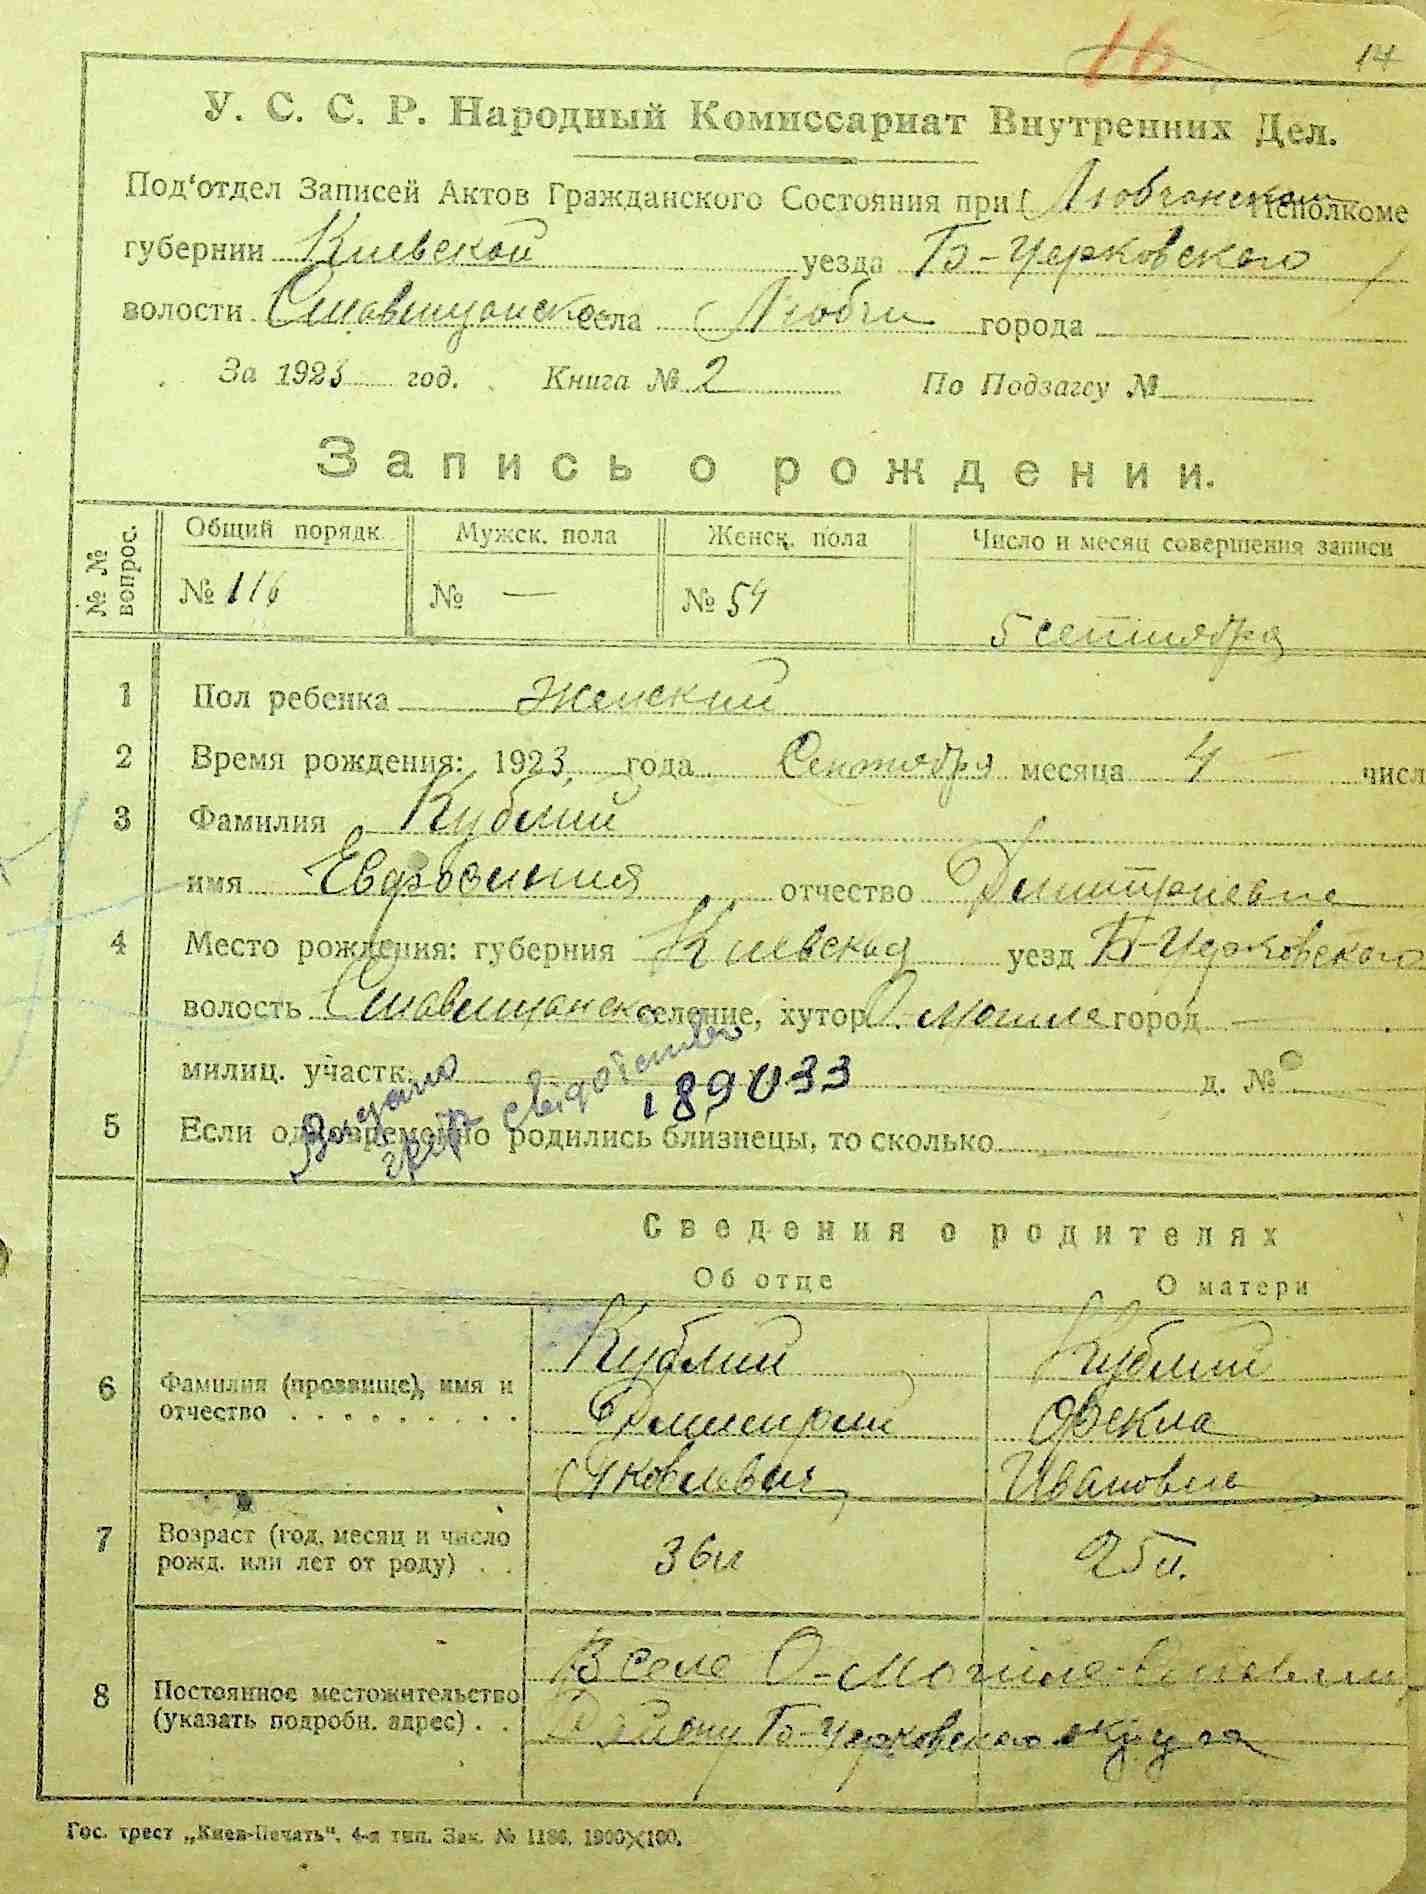 16 14
У. С. С. Р. Народный Комиссариат Внутренних Дел.
Под'отдел Записей Актов Гражданского Состояния при Исполкоме
губернии Киевской уезда Б-Церковского
волости села города
За 1923 год. Книга № 2 По Подзагсу №
Запись о рождении.
№ № вопрос. Общий порядк Мужск. пола Женск. пола Число и месяц совершения записи
№ 116 № — № 54 5 сентября
1 Пол ребенка женский
2 Время рождения: 1923 года Сентября месяца 4 — числ
3 Фамилия Кублий
имя Евфросиния отчество Дмитриевна
4 Место рождения: губерния Киевская уезд Б-Церковского
волость селение, хутор город —
милиц. участк. д. №
189033
5 Если одновременно родились близнецы, то сколько
Сведения о родителях
Об отце О матери
6 Фамилия (прозвище), имя и отчество Кублий Кублий
Дмитрий Фекла
Яковлевич Ивановна
7 Возраст (год, месяц и число рожд. или лет от роду) 36л 25л.
8 Постоянное местожительство (указать подробн. адрес) В селе
Б-Церковского округа
Гос. трест „Киев-Печать", 4-я тип. Зак. № 1186. 1000×100.